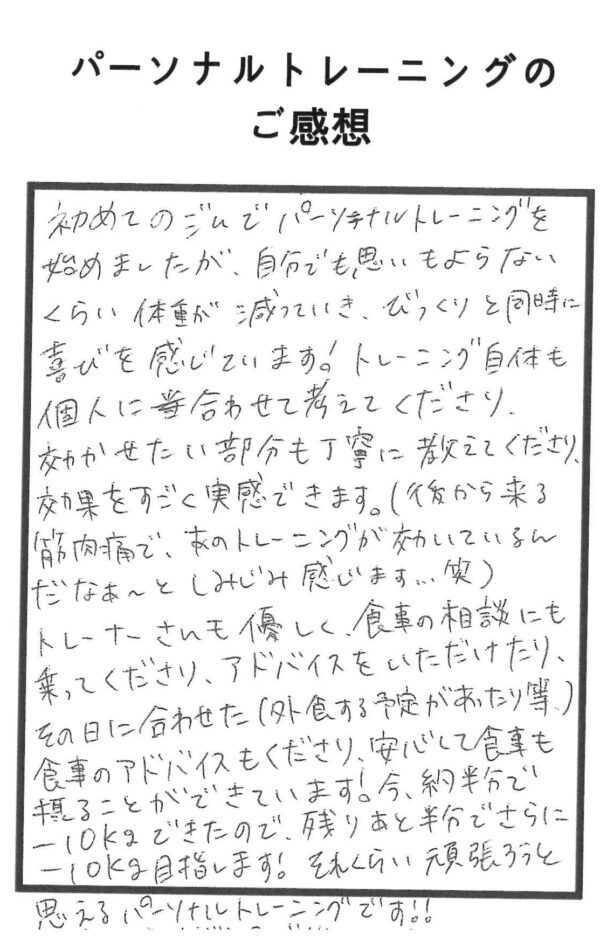 パーソナルトレーニングの
ご感想
初めてのジムでパーソナルトレーニングを
始めましたが、自分でも思いもよらない
くらい体重が減っていき、びっくりと同時に
喜びを感じています！トレーニング自体も
個人に合わせて考えてくださり、
効かせたい部分も丁寧に教えてくださり、
効果をすごく実感できます。(後から来る
筋肉痛で、あのトレーニングが効いているん
だなぁ〜としみじみ感じます…笑)
トレーナーさんも優しく、食事の相談にも
乗ってくださり、アドバイスをいただけたり、
その日に合わせた(外食する予定があったり等)
食事のアドバイスもくださり、安心して食事も
摂ることができています！今、約半分で
-10kgできたので、残りあと半分でさらに
-10kg目指します！それくらい頑張ろうと
思えるパーソナルトレーニングです!!